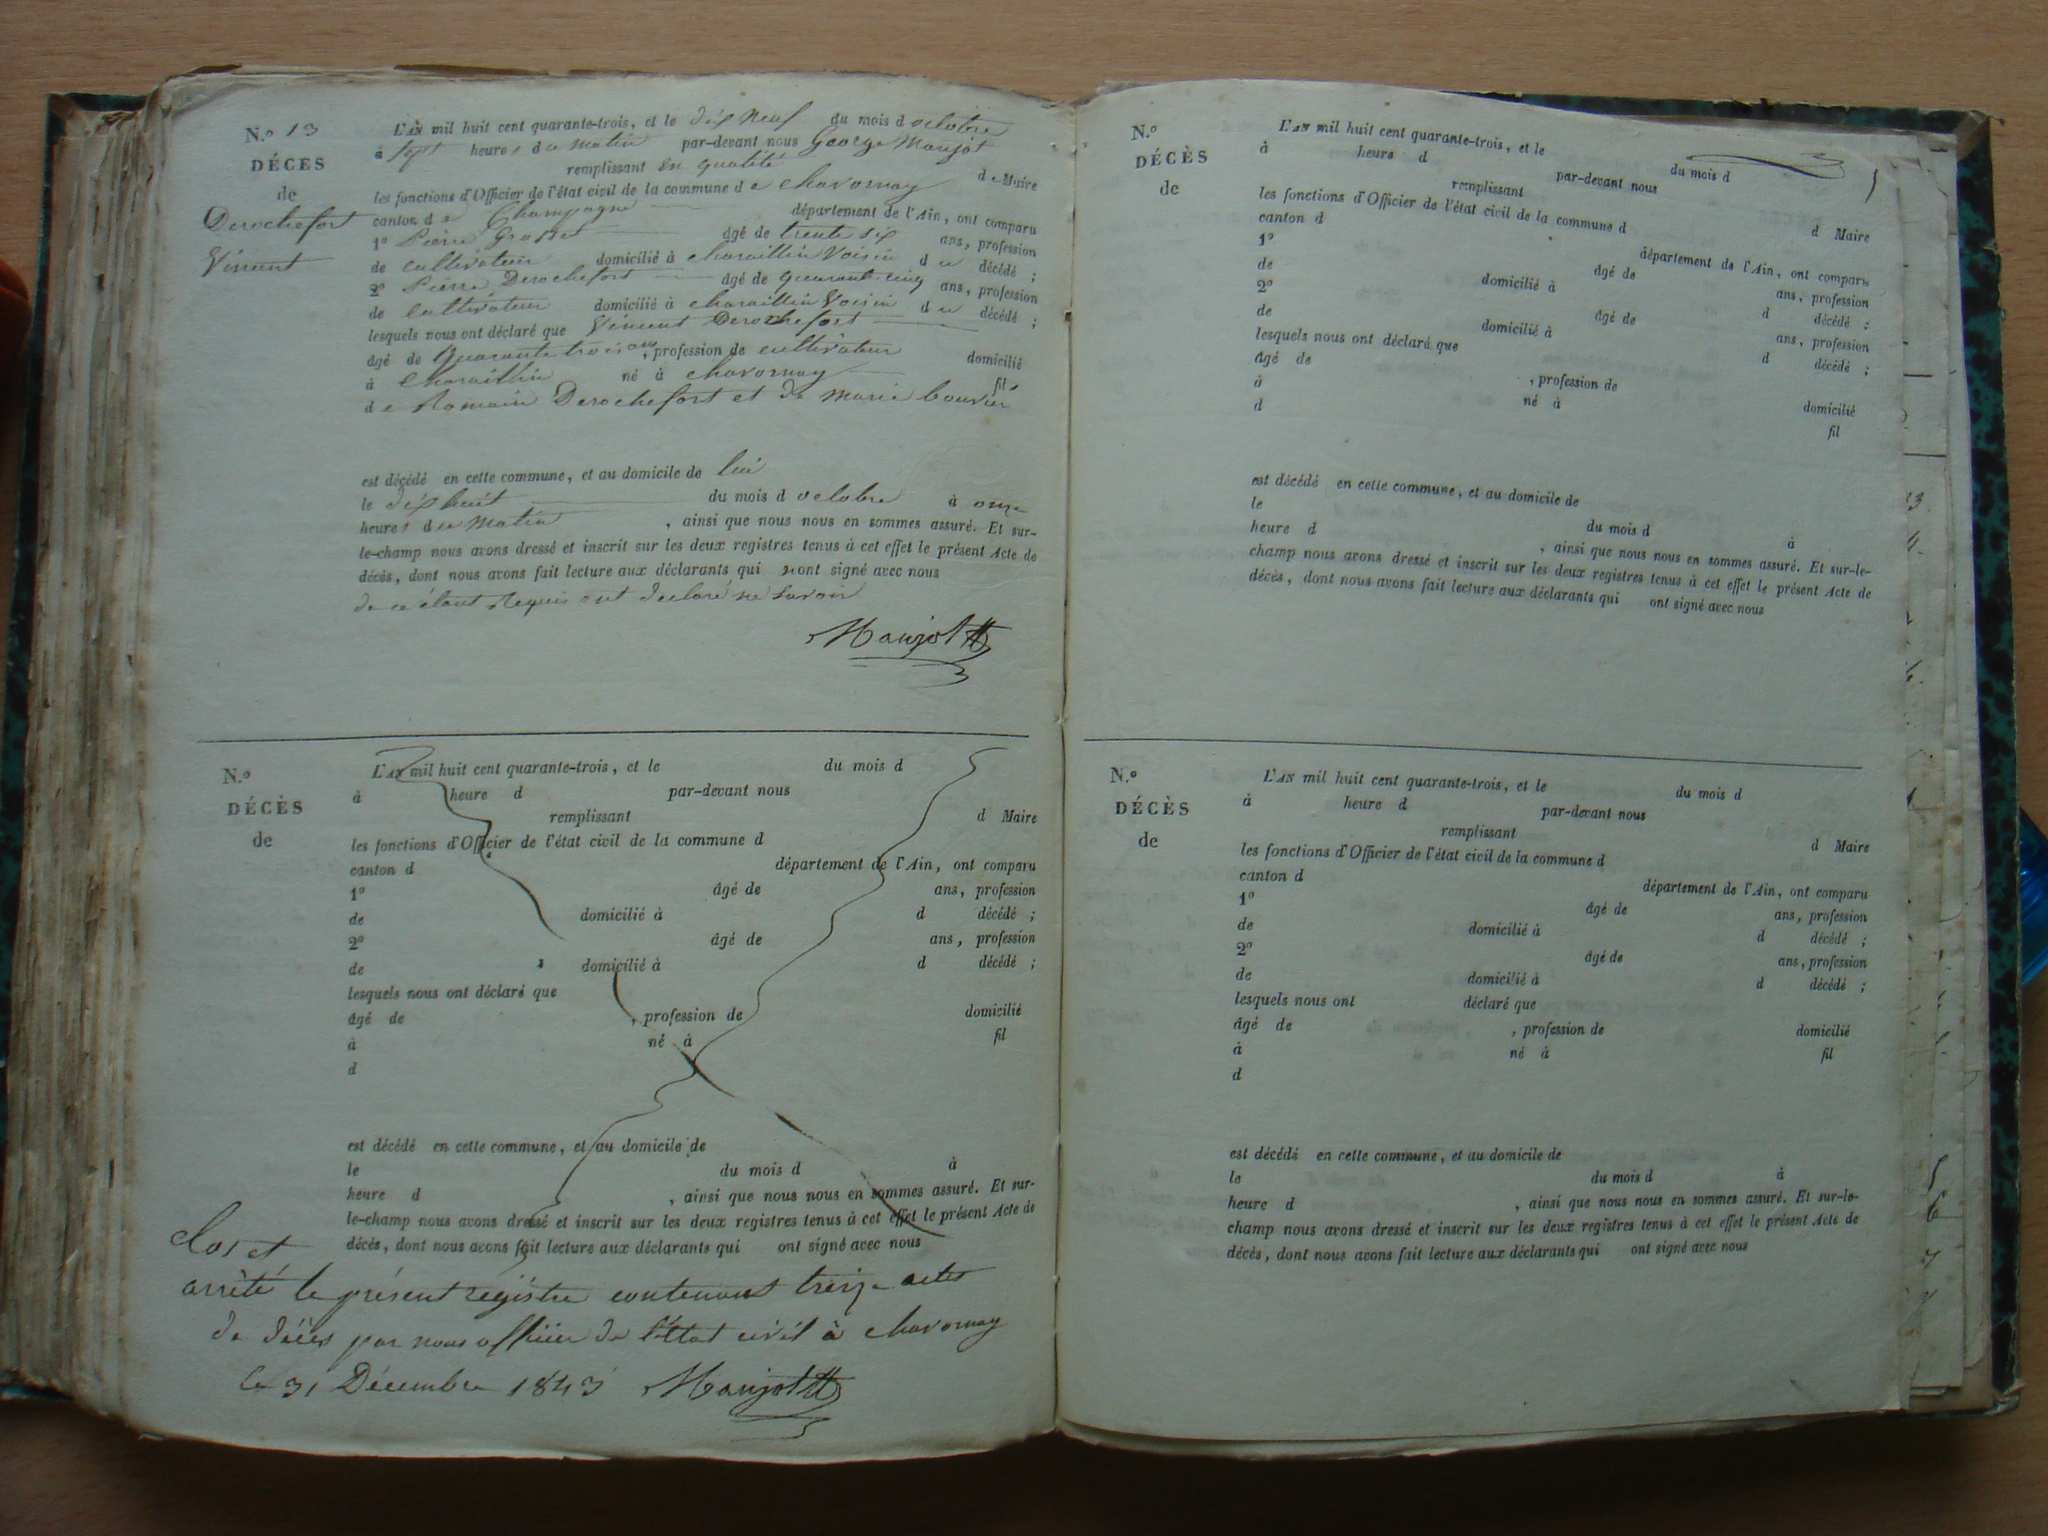 N.º 13
DÉCÈS
de
Derochefort
Vincent
L'AN mil huit cent quarante-trois, et le dix neuf du mois d octobre
à sept heures du matin par-devant nous George Manjot
remplissant en qualité de Maire
les fonctions d'Officier de l'état civil de la commune de chavornay
canton de Champagne département de l'Ain, ont comparu
1º Pierre Grosset âgé de trente six ans, profession
de cultivateur domicilié à charaillin Voisin du décédé ;
2º Pierre Derochefort âgé de quarante cinq ans, profession
de cultivateur domicilié à charaillin Voisin du décédé ;
lesquels nous ont déclaré que Vincent Derochefort
âgé de Quarante trois ans, profession de cultivateur domicilié
à Charaillin né à chavornay fil
de Romain Derochefort et de marie bouvier
est décédé en cette commune, et au domicile de lui
le dix huit du mois d octobre à onze
heures du Matin , ainsi que nous nous en sommes assuré. Et sur-
le-champ nous avons dressé et inscrit sur les deux registres tenus à cet effet le présent Acte de
décès, dont nous avons fait lecture aux déclarants qui nont signé avec nous
de ce étant Requis ont declaré ne Savoir
Manjot
N.º
DÉCÈS
de
L'AN mil huit cent quarante-trois, et le du mois d
à heure d par-devant nous
remplissant d Maire
les fonctions d'Officier de l'état civil de la commune d
canton d département de l'Ain, ont comparu
1º âgé de ans, profession
de domicilié à d décédé ;
2º âgé de ans, profession
de domicilié à d décédé ;
lesquels nous ont déclaré que
âgé de , profession de domicilié
à né à fil
d
est décédé en cette commune, et au domicile de
le du mois d à
heure d , ainsi que nous nous en sommes assuré. Et sur-
le-champ nous avons dressé et inscrit sur les deux registres tenus à cet effet le présent Acte de
décès, dont nous avons fait lecture aux déclarants qui ont signé avec nous
Clos et
arrêté le présent registre contenant treize actes
de décès par nous officier de l'état civil à chavornay
le 31 Décembre 1843 Manjot
N.º
DÉCÈS
de
L'AN mil huit cent quarante-trois, et le du mois d
à heure d par-devant nous
remplissant d Maire
les fonctions d'Officier de l'état civil de la commune d
canton d département de l'Ain, ont comparu
1º âgé de ans, profession
de domicilié à d décédé ;
2º âgé de ans, profession
de domicilié à d décédé ;
lesquels nous ont déclaré que
âgé de , profession de domicilié
à né à fil
d
est décédé en cette commune, et au domicile de
le du mois d à
heure d , ainsi que nous nous en sommes assuré. Et sur-le-
champ nous avons dressé et inscrit sur les deux registres tenus à cet effet le présent Acte de
décès, dont nous avons fait lecture aux déclarants qui ont signé avec nous
N.º
DÉCÈS
de
L'AN mil huit cent quarante-trois, et le du mois d
à heure d par-devant nous
remplissant d Maire
les fonctions d'Officier de l'état civil de la commune d
canton d département de l'Ain, ont comparu
1º âgé de ans, profession
de domicilié à d décédé ;
2º âgé de ans, profession
de domicilié à d décédé ;
lesquels nous ont déclaré que
âgé de , profession de domicilié
à né à fil
d
est décédé en cette commune, et au domicile de
le du mois d à
heure d , ainsi que nous nous en sommes assuré. Et sur-le-
champ nous avons dressé et inscrit sur les deux registres tenus à cet effet le présent Acte de
décès, dont nous avons fait lecture aux déclarants qui ont signé avec nous